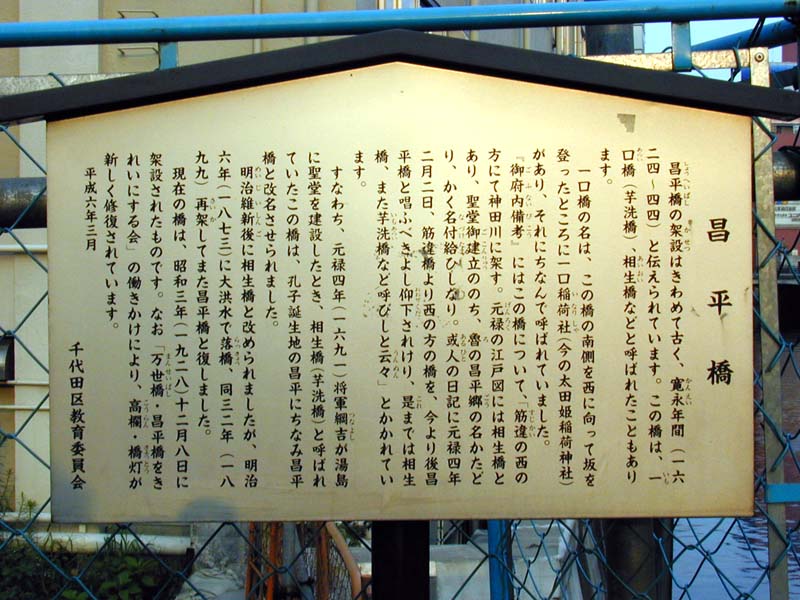 昌平橋
昌平橋の架設はきわめて古く、寛永年間（一六
二四〜四四）と伝えられています。この橋は、一
口橋（芋洗橋）、相生橋などと呼ばれたこともあり
ます。
一口橋の名は、この橋の南側を西に向って坂を
登ったところに一口稲荷社（今の太田姫稲荷神社）
があり、それにちなんで呼ばれていました。
『御府内備考』にはこの橋について、「筋違の西の
方にて神田川に架す。元禄の江戸図には相生橋と
あり、聖堂御建立ののち、魯の昌平郷の名かたど
り、かく名付給ひしなり。或人の日記に元禄四年
二月二日、筋違橋より西の方の橋を、今より後昌
平橋と唱ふべきよし仰下されけり、是までは相生
橋、また芋洗橋など呼びしと云々」とかかれてい
ます。
すなわち、元禄四年（一六九一）将軍綱吉が湯島
に聖堂を建設したとき、相生橋（芋洗橋）と呼ばれ
ていたこの橋は、孔子誕生地の昌平にちなみ昌平
橋と改名させられました。
明治維新後に相生橋と改められましたが、明治
六年（一八七三）に大洪水で落橋、同三二年（一八
九九）再架してまた昌平橋と復しました。
現在の橋は、昭和三年（一九二八）十二月八日に
架設されたものです。なお「万世橋・昌平橋をき
れいにする会」の働きかけにより、高欄・橋灯が
新しく修復されています。
平成六年三月
千代田区教育委員会